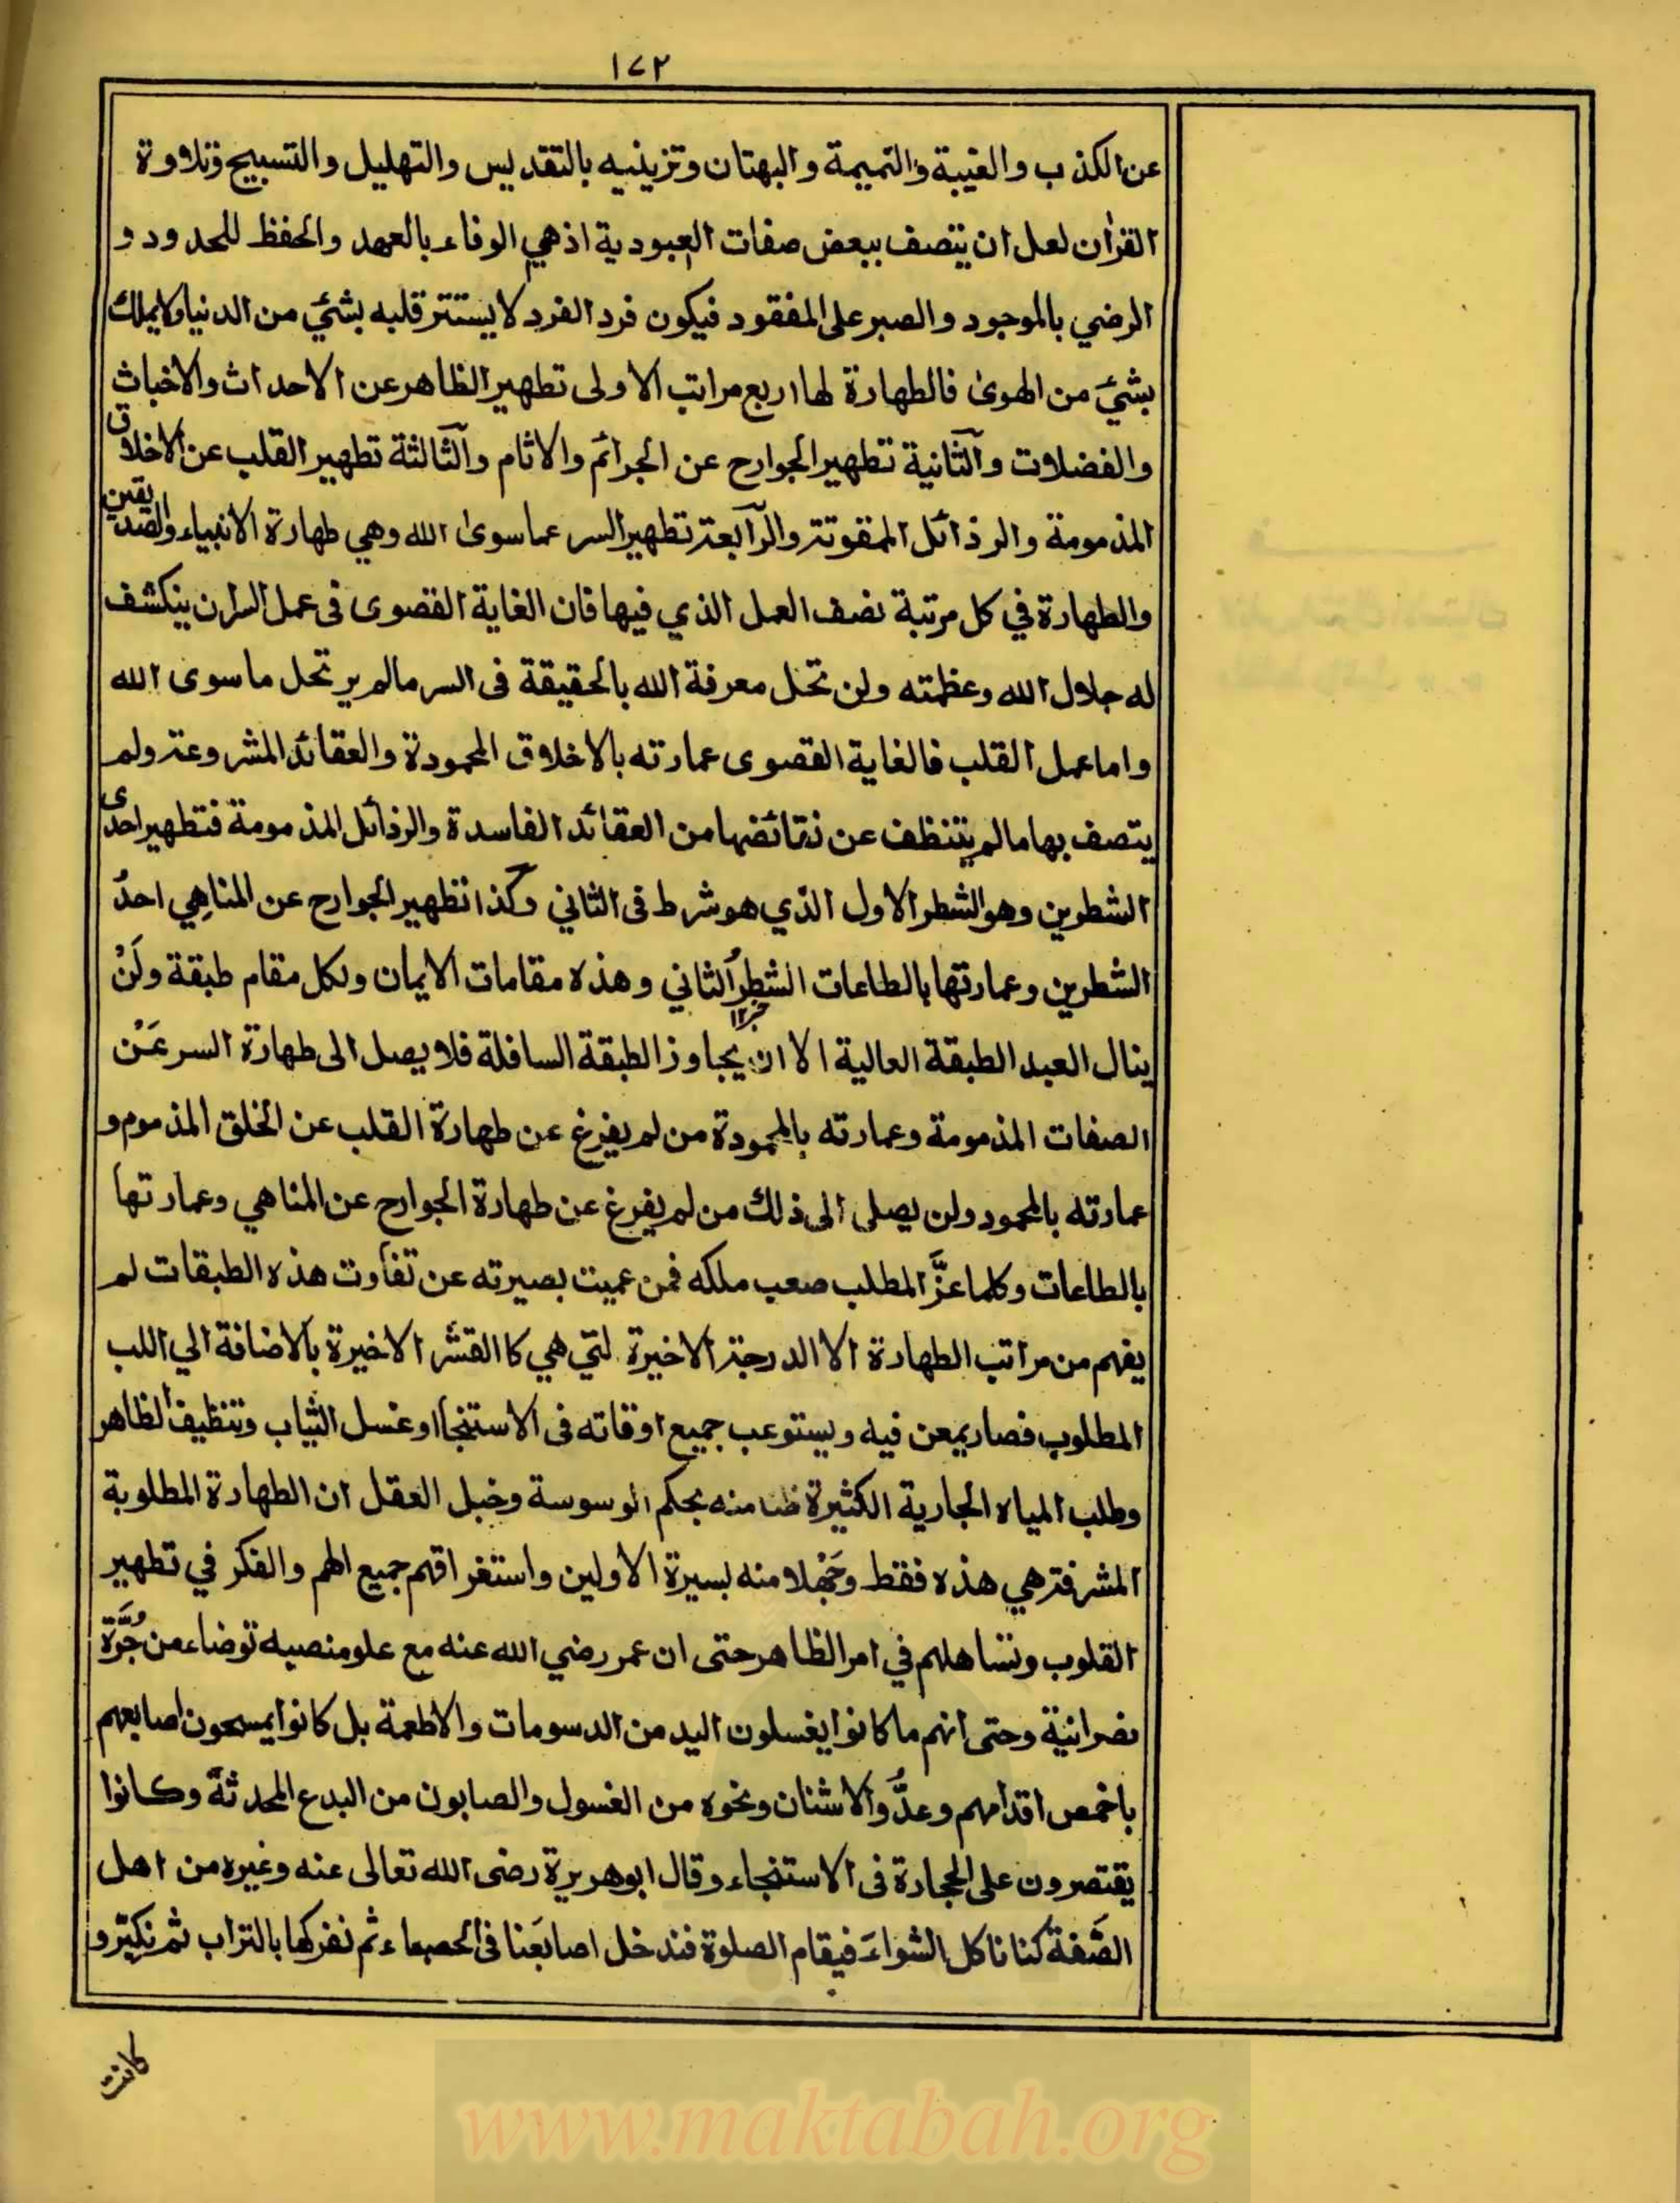 ١٧٢
عن الكذب والغيبة والنميمة والبهتان وتزيينه بالتقديس والتهليل والتسبيح وتلاوة
القرأن لعل ان يتصف ببعض صفات العبودية اذ هي الوفاء بالعهد والحفظ للحدود و
الرضي بالموجود والصبر على المفقود فيكون فرد الفرد لا يستتر قلبه بشئ من الدنيا ولا يملك
بشئ من الهوى فالطهارة لها اربع مراتب الاولى تطهير الظاهر عن الاحداث والاخباث
والفضلات والثانية تطهير الجوارح عن الجرائم والاثام والثالثة تطهير القلب عن الاخلاق
المذمومة والرذائل الممقوتة والرابعة تطهير السر عما سوى الله وهي طهارة الانبياء والصديقين
والطهارة في كل مرتبة نصف العمل الذي فيها فان الغاية القصوى فى عمل السر ان ينكشف
له جلال الله وعظمته ولن تحل معرفة الله بالحقيقة فى السر مالم يرتحل ما سوى الله
واما عمل القلب فالغاية القصوى عمارته بالاخلاق المحمودة والعقائد المشروعة ولم
يتصف بها مالم يتنظف عن نقائضها من العقائد الفاسدة والرذائل المذمومة فتطهير احدى
الشطرين وهو الشطر الاول الذي هو شرط فى الثاني وكذا تطهير الجوارح عن المناهي احد
الشطرين وعمارتها بالطاعات الشطر الثاني وهذه مقامات الايمان ولكل مقام طبقة ولن
ينال العبد الطبقة العالية الا ان يجاوز الطبقة السافلة فلا يصل الى طهارة السر عن
الصفات المذمومة وعمارته بالمحمودة من لم يفرغ عن طهارة القلب عن الخلق المذموم و
عمارته بالمحمود ولن يصلى الى ذلك من لم يفرغ عن طهارة الجوارح عن المناهي وعمارتها
بالطاعات وكلما عزّ المطلب صعب ملكه فمن عميت بصيرته عن تفاوت هذه الطبقات لم
يفهم من مراتب الطهارة الا الدرجة الاخيرة لتي هي كا القشر الاخيرة بالاضافة الي اللب
المطلوب فصار يمعن فيه ويستوعب جميع اوقاته فى الاستنجا او غسل الثياب وتنظيف الظاهر
وطلب المياه الجارية الكثيرة ظنا منه بحكم الوسوسة وخبل العقل ان الطهارة المطلوبة
المشرفة هي هذه فقط وجهلا منه بسيرة الاولين واستغراقهم جميع الهم والفكر في تطهير
القلوب وتساهلهم في امر الظاهر حتى ان عمر رضي الله عنه مع علو منصبه توضاء من جُرّة
نصرانية وحتى انهم ما كانوا يغسلون اليد من الدسومات والاطعمة بل كانوا يمسحون اصابعهم
باخمص اقدامهم وعدّوا الاشنان ونحوه من الغسول والصابون من البدع المحدثة وكانوا
يقتصرون على الحجارة فى الاستنجاء وقال ابو هريرة رضى الله تعالى عنه وغيره من اهل
الصّفة كنا ناكل الشواء فيقام الصلوة فندخل اصابعنا فى الحصباء ثم نفركها بالتراب ثم نكبّر و
كانوا
www.maktabah.org